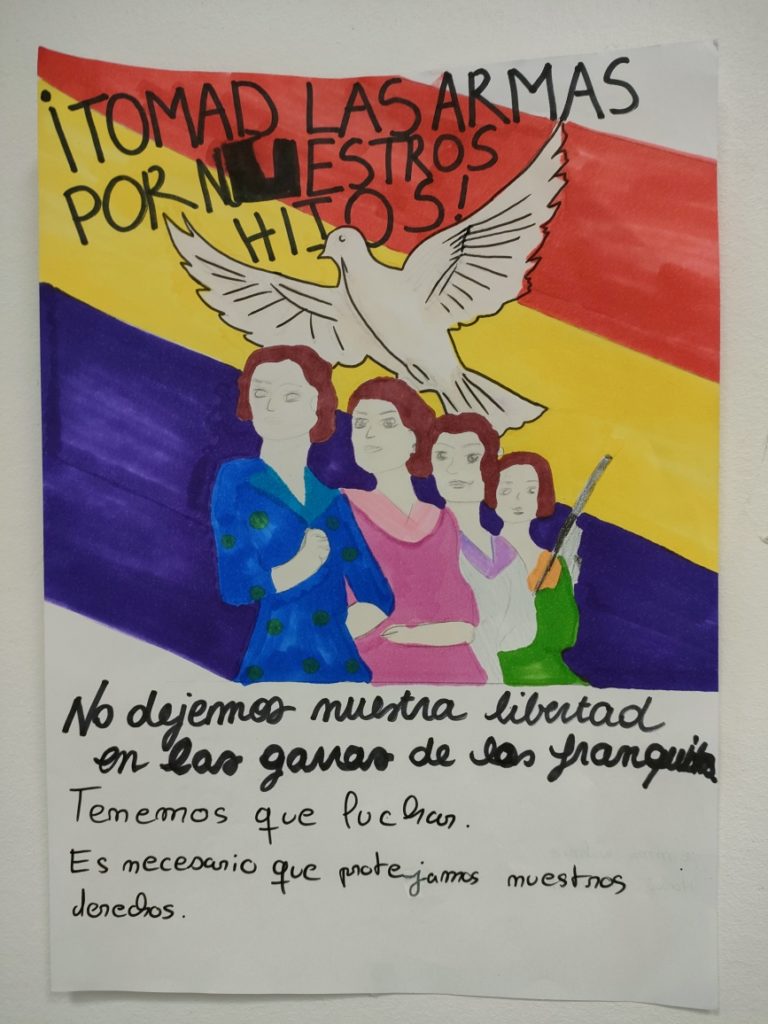 ¡TOMAD LAS ARMAS
POR NUESTROS
HIJOS!
No dejemos nuestra libertad
en las garras de los franquista
Tenemos que luchar.
Es necesario que protejamos nuestros
derechos.